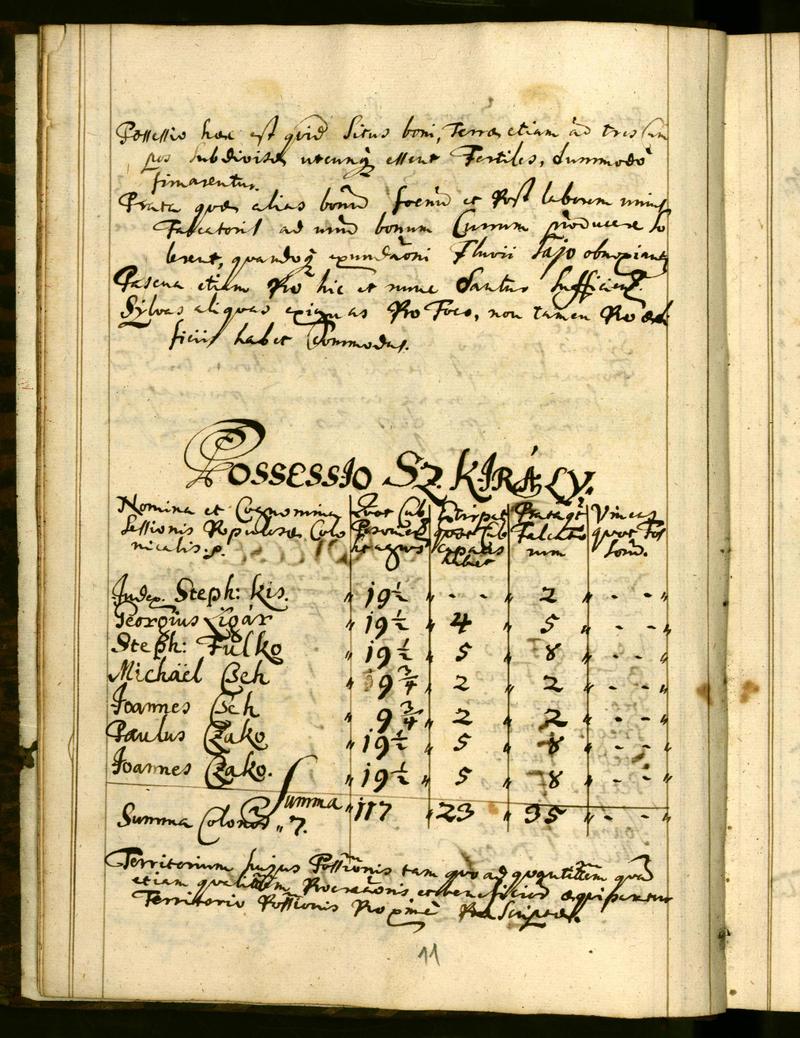 Possessio haec est quid Situs boni, Terras etiam ad tres Cam
pos Subdivisas utcunq essent Fertiles, dummodo
fimarentur.
Prata quae alias bonu foenu et Post laborem unius
Falcatoris ad unu bonum Currum producere so
lerent, quandoq exundaoni Fluvii Sajo obnoxiant
Pascua etiam Pro hic et nunc dantur Sufficient.
Sylvas aliquas exiguas Pro Foco, non tamen Pro aedi
ficiis habet Commodas.
POSSESSIO SZ. KIRÁLY.
Nomina et Cognomina
Sessionis Populosae Colo
nicalis.
Quot Cub
Posonien
het agros
Extirpat
quot Cub
capaces
habet
Prata qt
Falcato
rum
Vineas
quot Fos
sorum.
Judex. Steph: Kis. " 19½ " - - " 2 " - - "
Georgius Ligár " 19½ " 4 " 5 " - - "
Steph: Fulko " 19½ " 5 " 8 " - - "
Michaël Cseh " 9¾ " 2 " 2 " - - "
Joannes Cseh " 9¾ " 2 " 2 " - - "
Paulus Czako " 19½ " 5 " 8 " - - "
Joannes Czako. " 19½ " 5 " 8 " - - "
Summa " 117 " 23 " 35 " - - "
Summa Colonor " 7.
Territorium hujus Possionis tam quo ad quantitem qua
etiam qualitem Procreaonis et beneficior aequiparatur
Territorio Possionis Proxime Prae Scriptae.
11